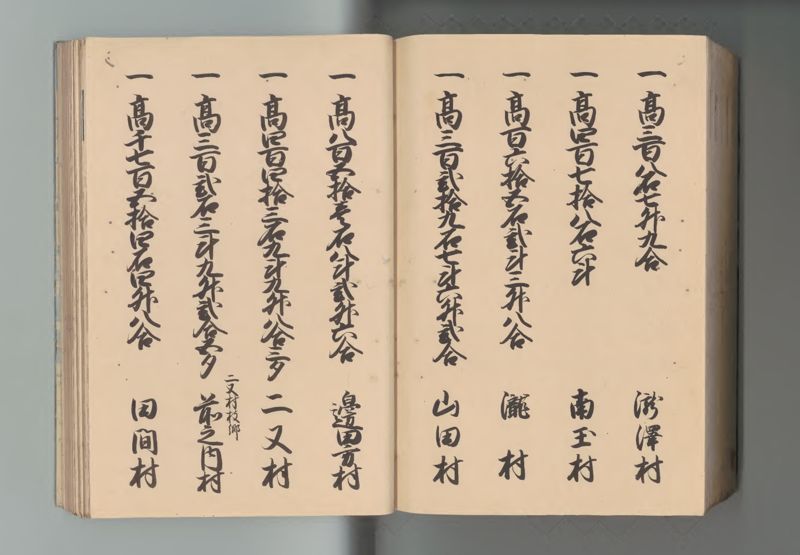 一 高三百八石七升九合 滝澤村
一 高四百七拾八石六斗 南玉村
一 高百六拾五石弐斗三升八合 瀧村
一 高三百弐拾九石七斗六升弐合 山田村
一 高八百五拾壱石八斗弐升六合 邉田方村
一 高四百四拾三石九斗九升八合三夕 二又村
二又村枝郷
一 高三百弐石三斗九升弐合五夕 前之内村
一 高千七百五拾四石四升八合 田間村